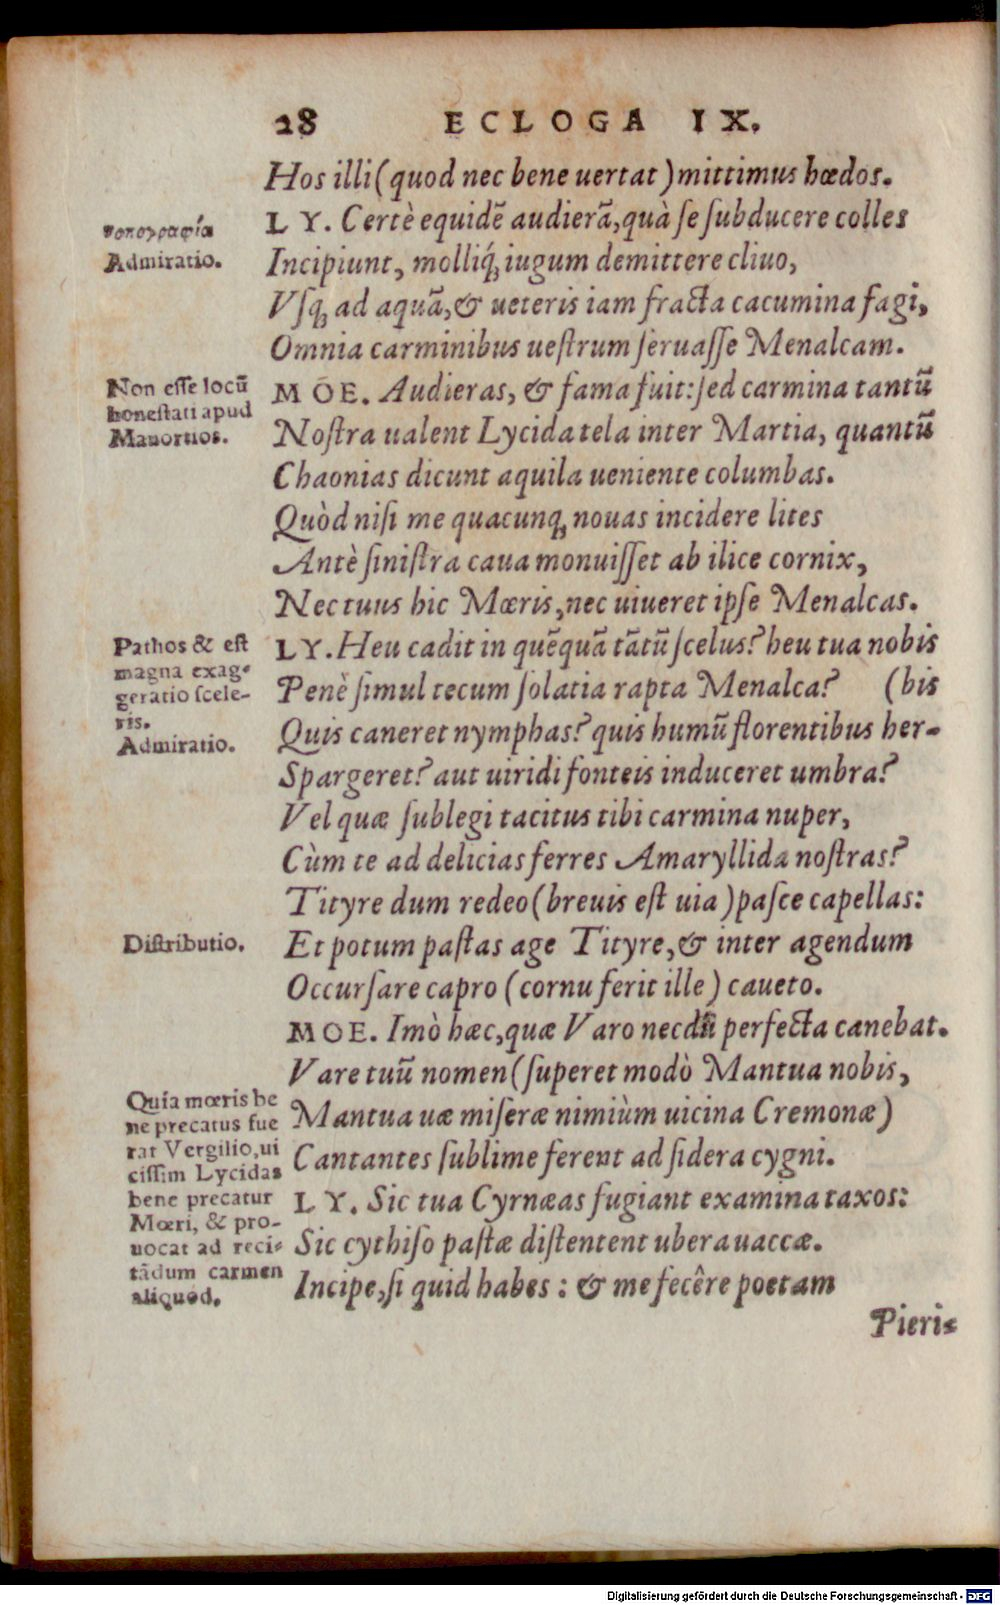 28 ECLOGA IX.
Hos illi (quod nec bene uertat) mittimus hœdos.
τοπογραφία
LY. Certè equidẽ audierã, quà ſe ſubducere colles
Admiratio.
Incipiunt, molliq́; iugum demittere cliuo,
Vſq; ad aquã, & ueteris iam fracta cacumina fagi,
Omnia carminibus ueſtrum ſeruaſſe Menalcam.
Non eſſe locũ
honeſtati apud
Mauortios.
MOE. Audieras, & fama fuit: ſed carmina tantũ
Noſtra ualent Lycida tela inter Martia, quantũ
Chaonias dicunt aquila ueniente columbas.
Quòd niſi me quacunq; nouas incidere lites
Antè ſiniſtra caua monuiſſet ab ilice cornix,
Nec tuus hic Mœris, nec uiueret ipſe Menalcas.
Pathos & eſt
magna exag-
geratio ſcele-
ris.
Admiratio.
LY. Heu cadit in quẽquã tãtũ ſcelus? heu tua nobis
Penè ſimul tecum ſolatia rapta Menalca? (bis
Quis caneret nymphas? quis humũ florentibus her-
Spargeret? aut uiridi fonteis induceret umbra?
Vel quæ ſublegi tacitus tibi carmina nuper,
Cùm te ad delicias ferres Amaryllida noſtras?
Tityre dum redeo (breuis eſt uia) paſce capellas:
Diſtributio.
Et potum paſtas age Tityre, & inter agendum
Occurſare capro (cornu ferit ille) caueto.
MOE. Imò hæc, quæ Varo necdũ perfecta canebat.
Vare tuũ nomen (ſuperet modò Mantua nobis,
Mantua uæ miſeræ nimiùm uicina Cremonæ)
Cantantes ſublime ferent ad ſidera cygni.
Quia mœris be
ne precatus fue
rat Vergilio, ui
ciſſim Lycidas
bene precatur
Mœri, & pro-
uocat ad reci-
tãdum carmen
aliquod.
LY. Sic tua Cyrnæas fugiant examina taxos:
Sic cythiſo paſtæ diſtentent ubera uaccæ.
Incipe, ſi quid habes: & me fecêre poetam
Pieri-
Digitalisierung gefördert durch die Deutsche Forschungsgemeinschaft - DFG